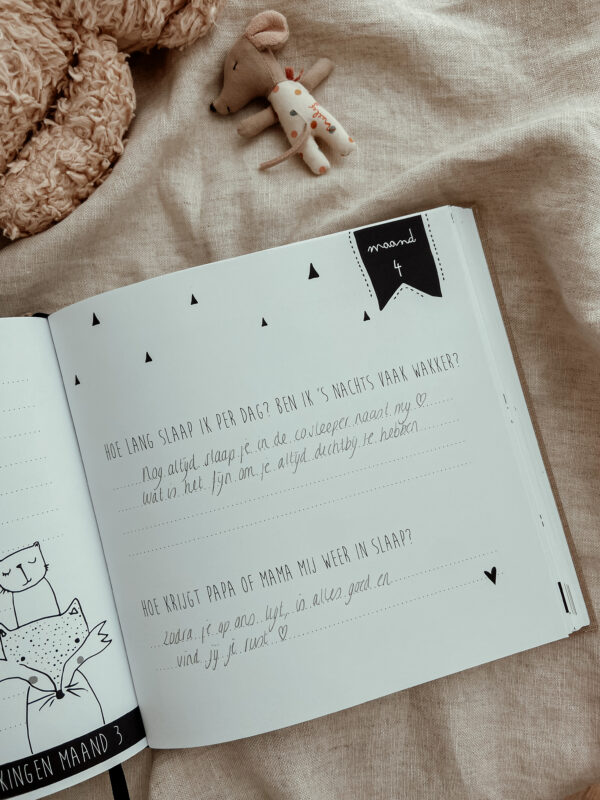 maand
4
HOE LANG SLAAP IK PER DAG? BEN IK 'S NACHTS VAAK WAKKER?
Nog altijd slaap je in de cosleeper naast my ♡
wat is het fijn om je altijd dichtbij te hebben
HOE KRIJGT PAPA OF MAMA MIJ WEER IN SLAAP?
zodra je op ons ligt, is alles goed en
vind jij je rust ♡
KINGEN MAAND 3